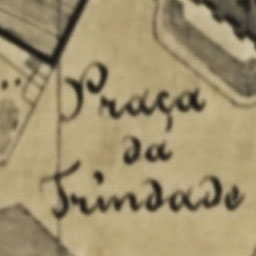 Praça
da
Trindade